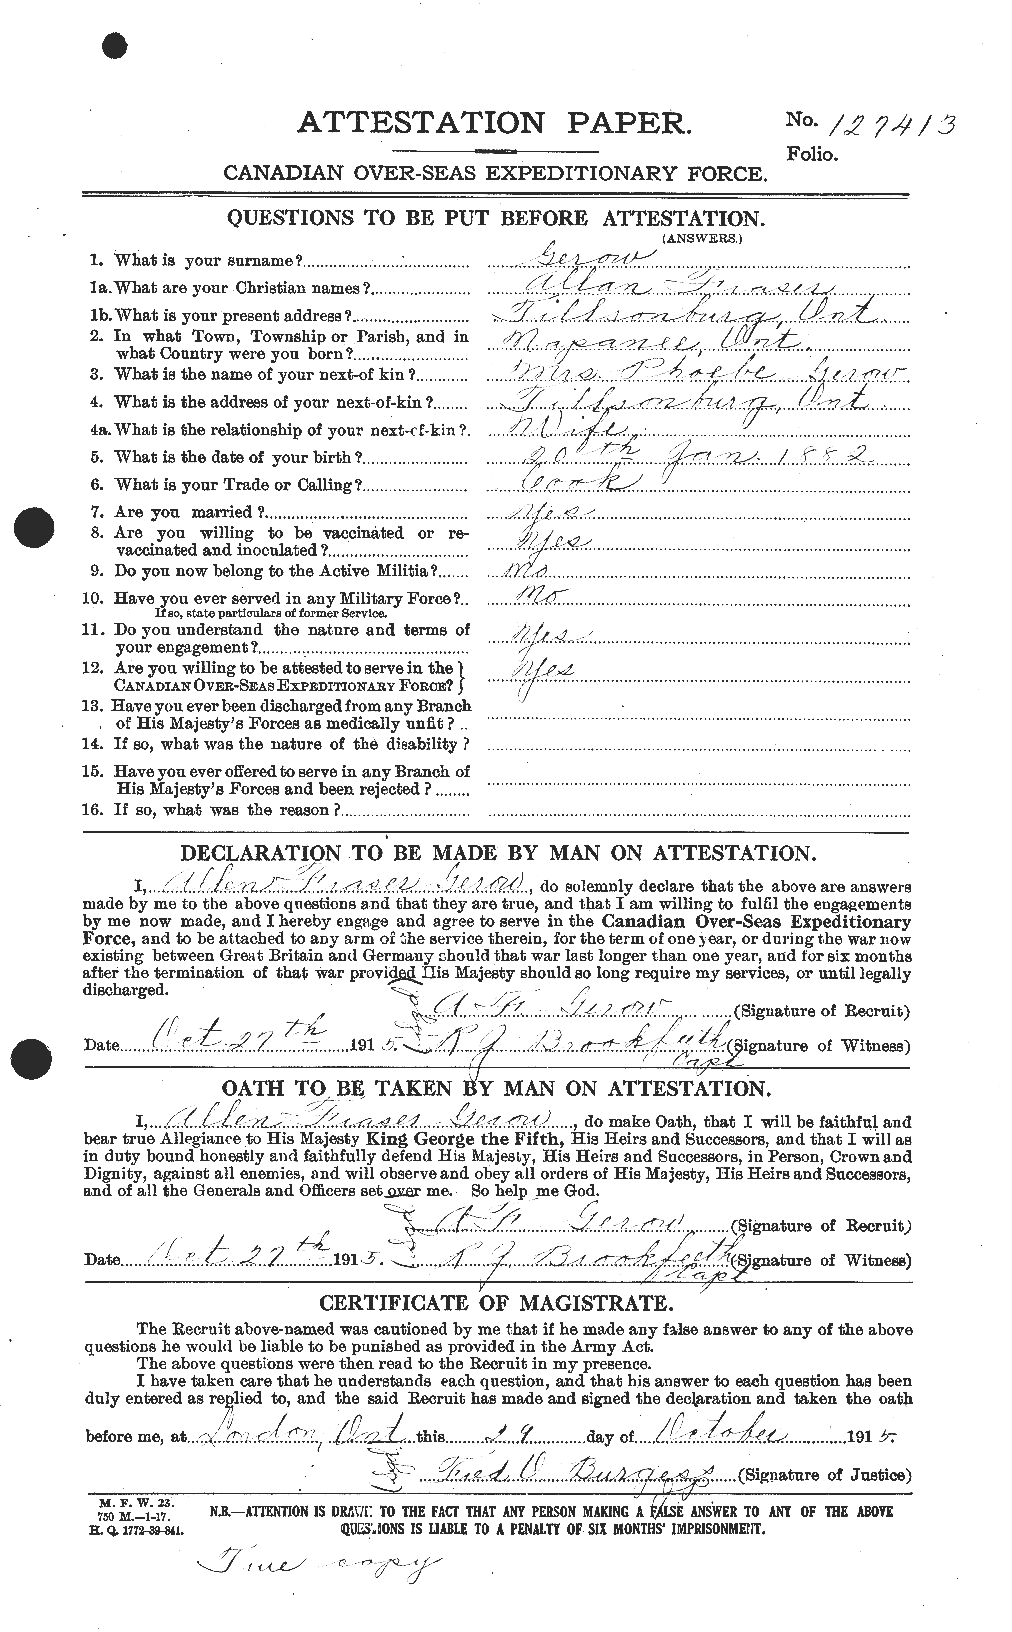 ATTESTATION PAPER.
No. 127413
Folio.
CANADIAN OVER-SEAS EXPEDITIONARY FORCE.
QUESTIONS TO BE PUT BEFORE ATTESTATION.
(ANSWERS.)
1. What is your surname? Gerow
1a. What are your Christian names? Allan Fraser
1b. What is your present address? Tillsonburg, Ont
2. In what Town, Township or Parish, and in
what Country were you born? Napanee, Ont.
3. What is the name of your next-of kin? Mrs. Phoebe Gerow
4. What is the address of your next-of-kin? Tillsonburg, Ont
4a. What is the relationship of your next-of-kin? Wife
5. What is the date of your birth? 20th Jan. 1882
6. What is your Trade or Calling? Cook
7. Are you married? Yes
8. Are you willing to be vaccinated or re-
vaccinated and inoculated? Yes
9. Do you now belong to the Active Militia? No
10. Have you ever served in any Military Force? No
If so, state particulars of former Service.
11. Do you understand the nature and terms of
your engagement? Yes
12. Are you willing to be attested to serve in the
CANADIAN OVER-SEAS EXPEDITIONARY FORCE? Yes
13. Have you ever been discharged from any Branch
of His Majesty's Forces as medically unfit?
14. If so, what was the nature of the disability?
15. Have you ever offered to serve in any Branch of
His Majesty's Forces and been rejected?
16. If so, what was the reason?
DECLARATION TO BE MADE BY MAN ON ATTESTATION.
I, Allen Fraser Gerow, do solemnly declare that the above are answers
made by me to the above questions and that they are true, and that I am willing to fulfil the engagements
by me now made, and I hereby engage and agree to serve in the Canadian Over-Seas Expeditionary
Force, and to be attached to any arm of the service therein, for the term of one year, or during the war now
existing between Great Britain and Germany should that war last longer than one year, and for six months
after the termination of that war provided His Majesty should so long require my services, or until legally
discharged.
(Sgd) A F Gerow (Signature of Recruit)
Date Oct 27th 1915. R J Brookfeeth Capt (Signature of Witness)
OATH TO BE TAKEN BY MAN ON ATTESTATION.
I, Allen Fraser Gerow, do make Oath, that I will be faithful and
bear true Allegiance to His Majesty King George the Fifth, His Heirs and Successors, and that I will as
in duty bound honestly and faithfully defend His Majesty, His Heirs and Successors, in Person, Crown and
Dignity, against all enemies, and will observe and obey all orders of His Majesty, His Heirs and Successors,
and of all the Generals and Officers set over me. So help me God.
Sgd A F Gerow (Signature of Recruit)
Date Oct 27th 1915. R J Brookfeeth Capt (Signature of Witness)
CERTIFICATE OF MAGISTRATE.
The Recruit above-named was cautioned by me that if he made any false answer to any of the above
questions he would be liable to be punished as provided in the Army Act.
The above questions were then read to the Recruit in my presence.
I have taken care that he understands each question, and that his answer to each question has been
duly entered as replied to, and the said Recruit has made and signed the declaration and taken the oath
before me, at London, Ont this 29 day of October 1915.
(Sgd) Fred V Burgess (Signature of Justice)
M. F. W. 23.
750 M.—1-17.
H. Q. 1772-39-841.
N.B.—ATTENTION IS DRAWN TO THE FACT THAT ANY PERSON MAKING A FALSE ANSWER TO ANY OF THE ABOVE
QUESTIONS IS LIABLE TO A PENALTY OF SIX MONTHS' IMPRISONMENT.
True copy